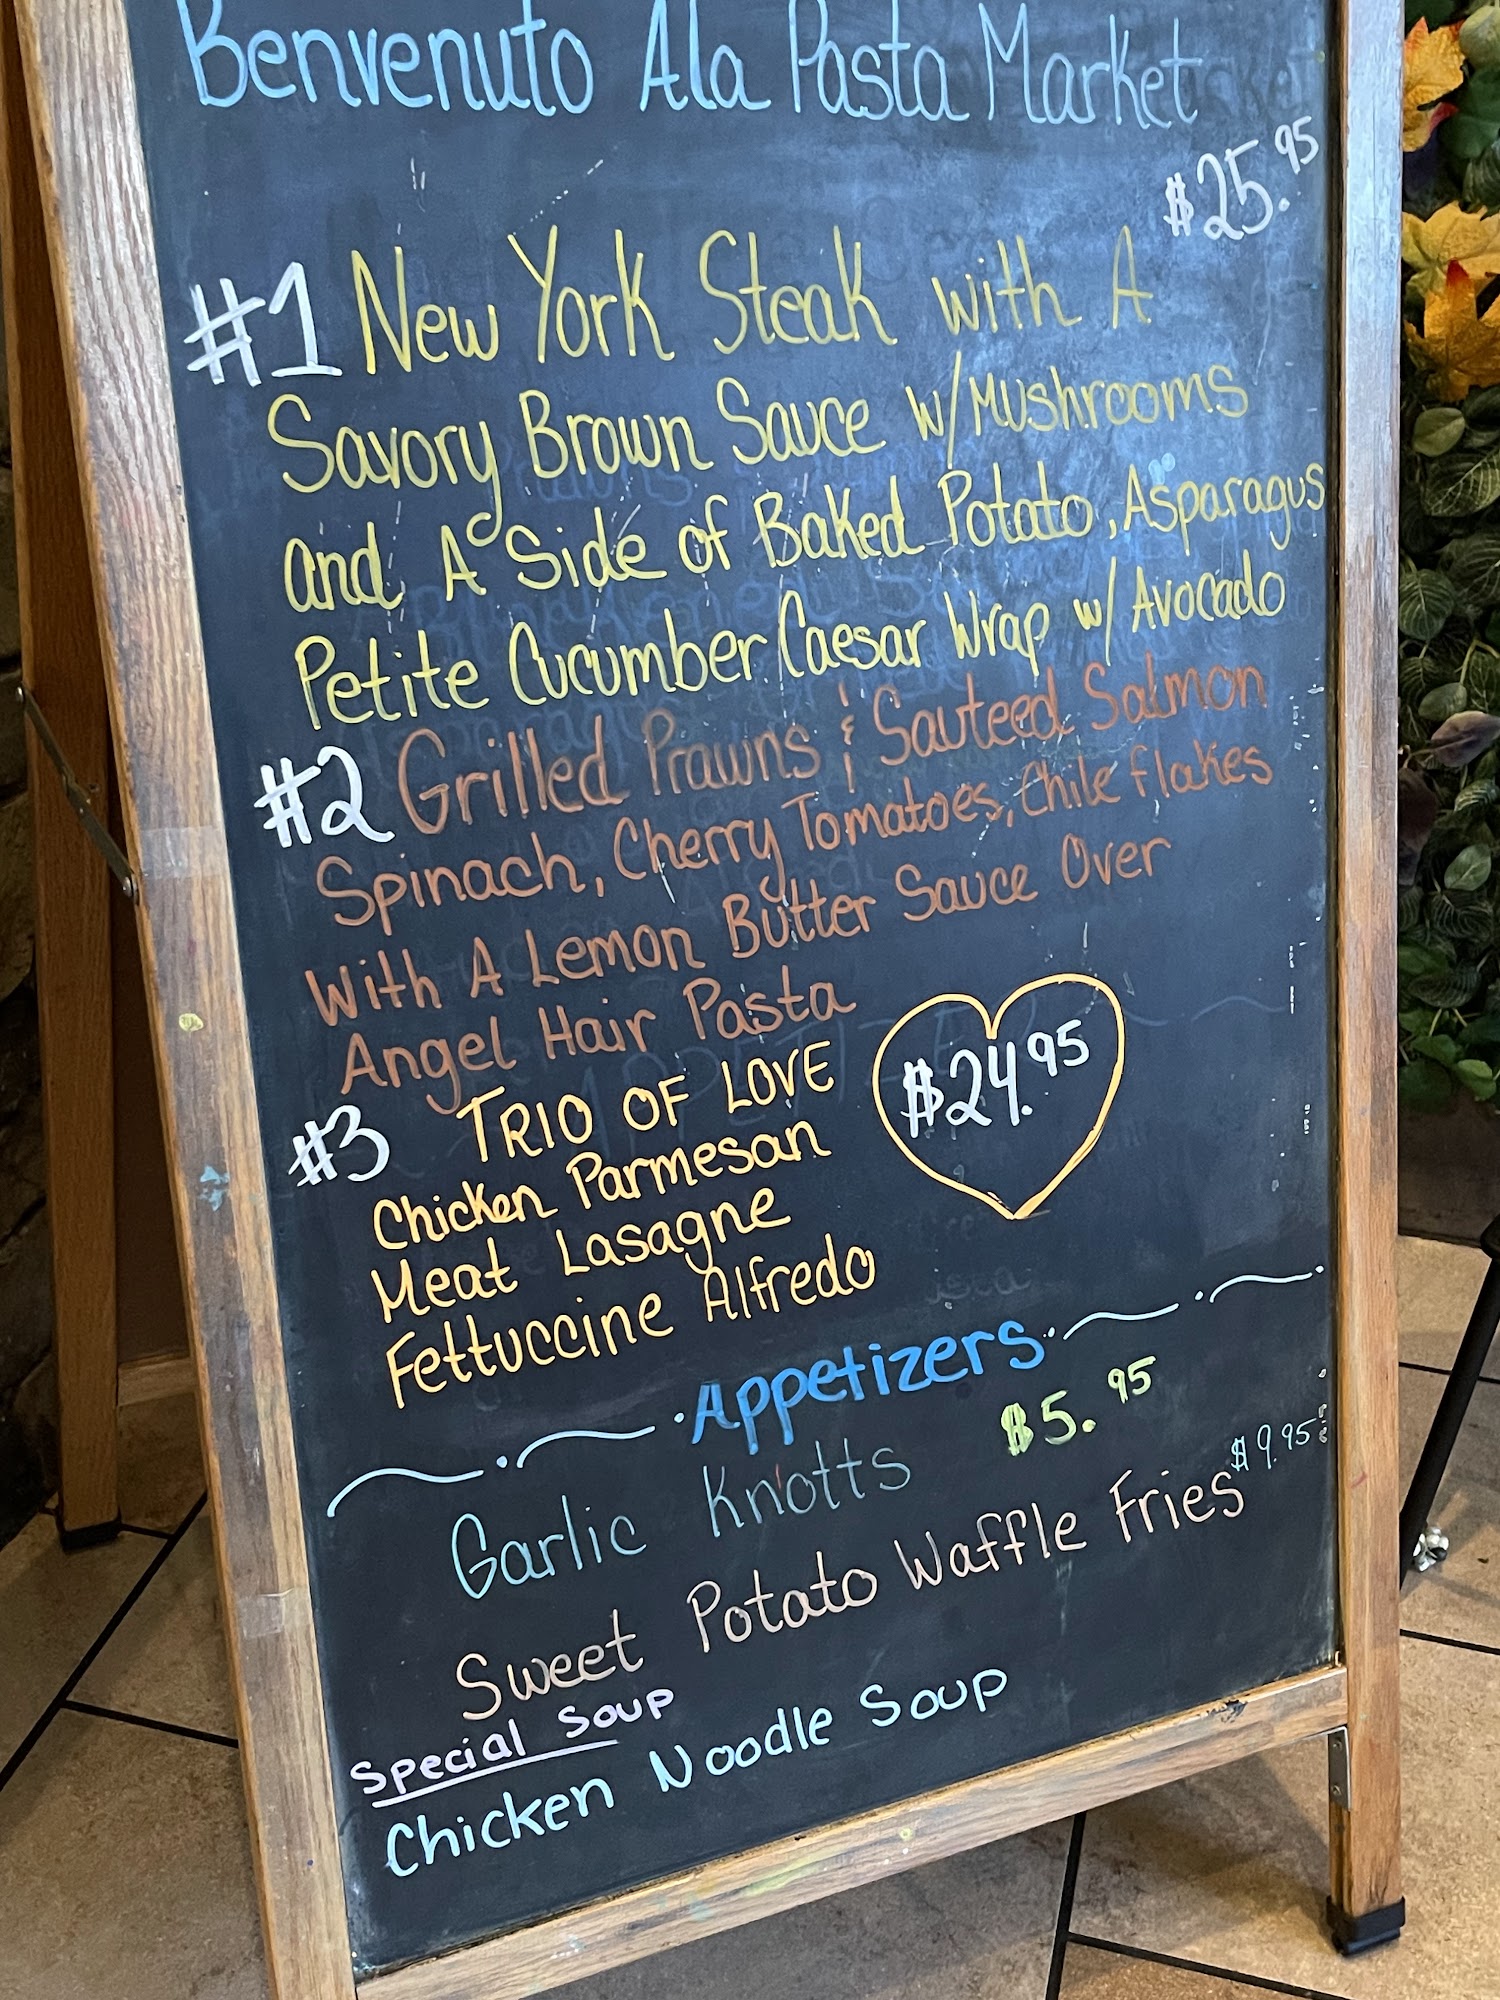 Benvenuto Ala Pasta Market
$25.95
#1 New York Steak with A
Savory Brown Sauce w/Mushrooms
and A Side of Baked Potato, Asparagus
Petite Cucumber Caesar Wrap w/ Avocado
#2 Grilled Prawns & Sauteed Salmon
Spinach, Cherry Tomatoes, Chile flakes
With A Lemon Butter Sauce Over
Angel Hair Pasta
#3 TRIO OF LOVE
$24.95
Chicken Parmesan
Meat Lasagne
Fettuccine Alfredo
Appetizers
Garlic Knotts $5.95
Sweet Potato Waffle Fries $9.95
Special Soup
Chicken Noodle Soup